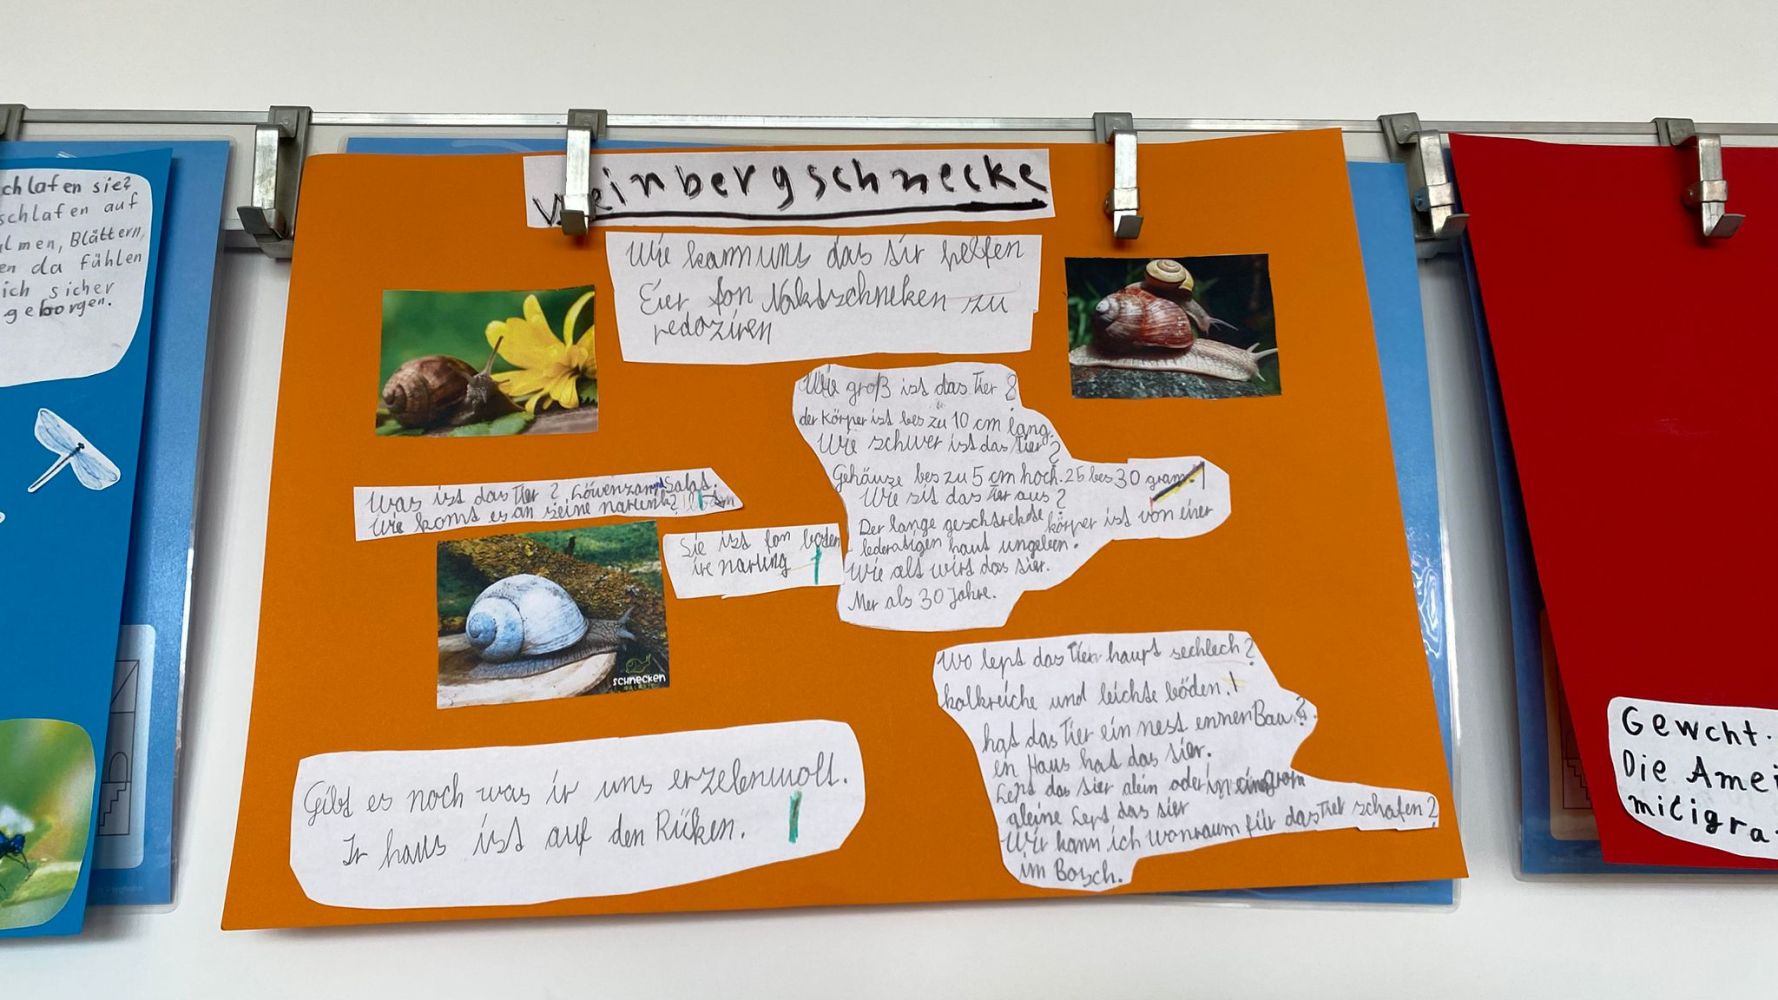 chlafen sie?
schlafen auf
lmen, Blättern,
en da fühlen
ich sicher
geborgen.
Weinbergschnecke
Wie kann uns das tir helfen
Eier fon Naktschneken zu
redoziren
Wie groß ist das Tier ?
der körper ist bes zu 10 cm lang.
Wie schwer ist das Tier ?
Gehäuze bes zu 5 cm hoch. 25 bes 30 gram.
Wie sit das Tier aus ?
Der lange geschtrekte körper ist von einer
lederatigen haut umgeben.
Wie alt wird das tier.
Mer als 30 Jahre.
Was ist das Tier ? Löwenzand Salat.
Wie komt es an seine narung ?
Sie ist fon boden
ire narung
schnecken
Wo lept das Tier haupt sechlech ?
kalkreiche und leichte böden.
hat das Tier ein nest ennen Bau ?
en Haus hat das tier.
Lept das tier alein oder in ein gropn
aleine Lept das tier
Wir kann ich wonraum für das Tier schafen ?
im Bosch.
Gibt es noch was ir uns erzelen wolt.
Ir haus ist auf den Rüken.
Gewcht.
Die Amei
miligra